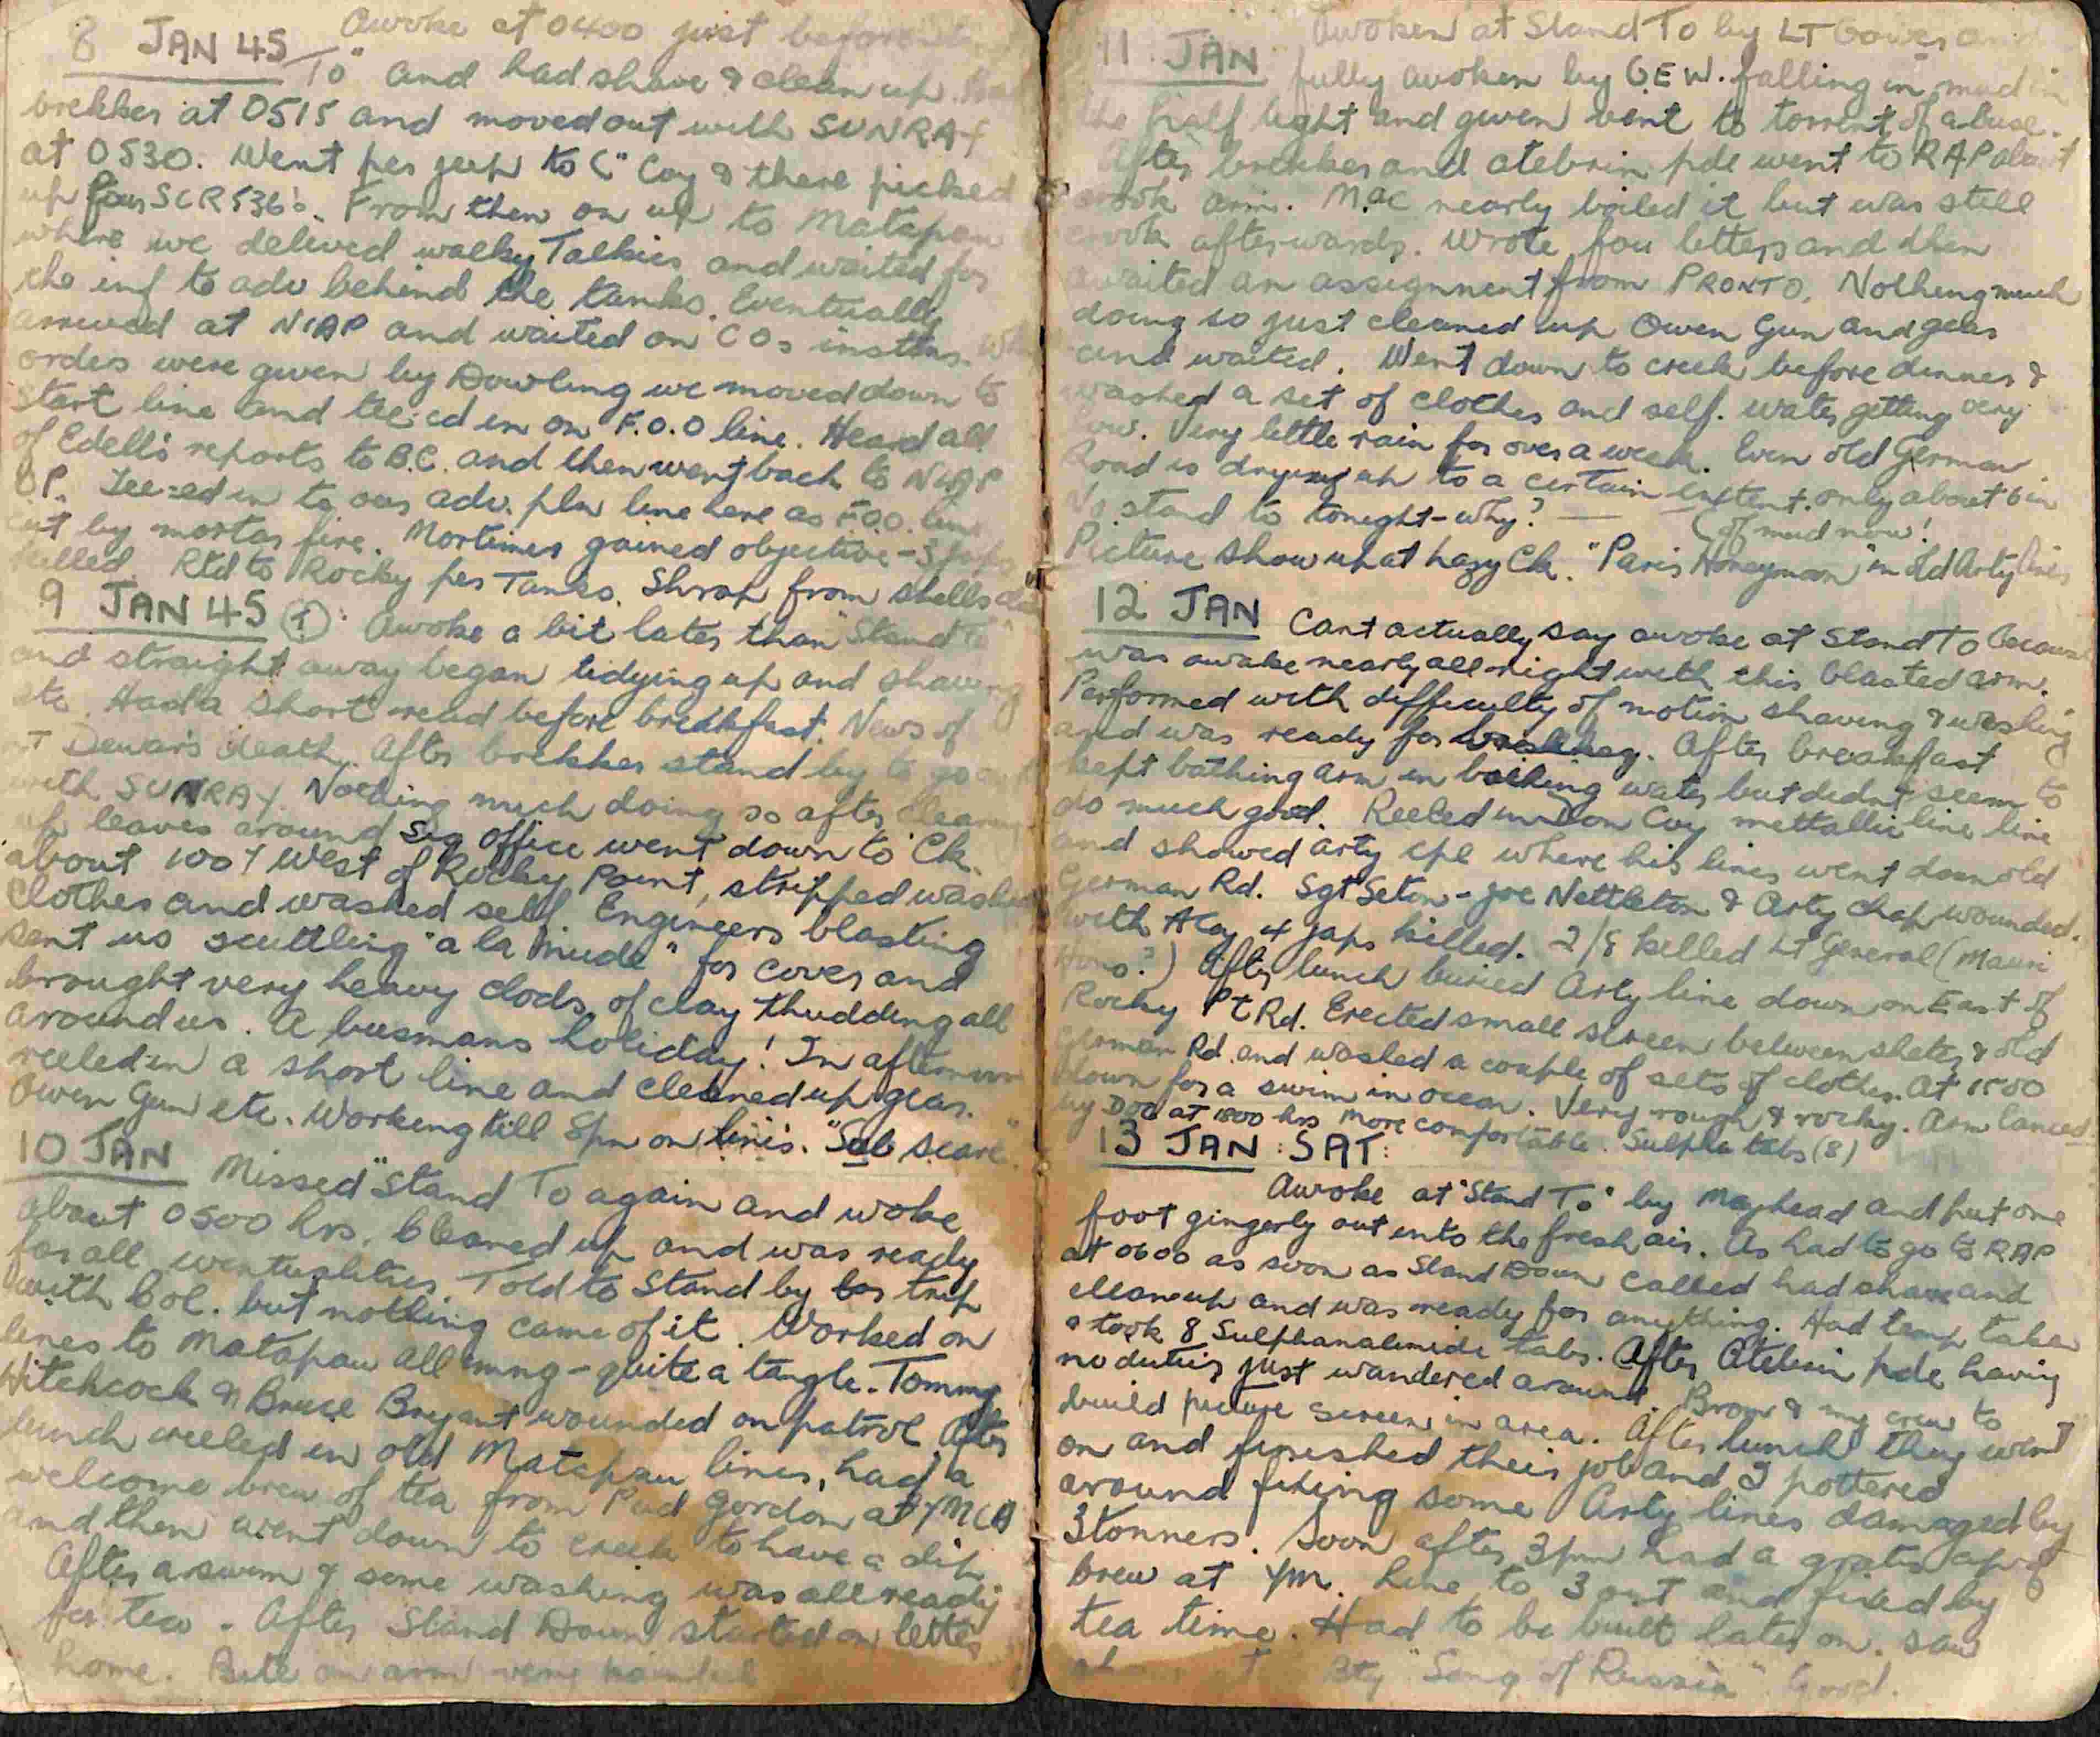 8 JAN 45 Awoke at 0400 just before
To" and had shave & clean up.
brekker at 0515 and moved out with SUNRAY
at 0530. Went per jeep to C" Coy & there picked
up four SCR536's. From then on up to Matapau
where we delived walky Talkies and waited for
the inf to adv behind the tanks. Eventually
arrived at NIAP and waited on COs instns.
orders were given by Dowling we moved down to
start line and tee-ed in on F.O.O line. Heard all
of Edell's reports to B.C. and then went back to NIAP
OP. Tee-ed in to our adv. pln line here as F.O.O. line
cut by mortar fire. Mortimer gained objective - 3 japs
killed. Rtd to Rocky per Tanks. Shrap from shells
9 JAN 45 Awoke a bit later than "Stand To"
and straight away began tidying up and shaving
etc. Had a short read before breakfast. News of
Dewar's death. After brekker stand by to go
with SUNRAY. Nothing much doing so after clearing
up leaves around Sig office went down to Ck.
about 100 Y West of Rocky Point, stripped washed
clothes and washed self. Engineers blasting
sent us scuttling "a la nude" for cover and
brought very heavy clods of clay thudding all
around us. A busmans holiday! In afternoon
reeled in a short line and cleaned up gear.
Owen Gun etc. Working till 8pm on lines. "Sub scare"
10 JAN Missed "Stand To again and woke
about 0500 hrs. Cleaned up and was ready
for all eventualities. Told to Stand by for trip
with Col. but nothing came of it. Worked on
lines to Matapau all mng - quite a tangle. Tommy
Hitchcock & Bruce Bryant wounded on patrol. After
lunch reeled in old Matapau lines, had a
welcome brew of tea from Pud Gordon at YMCA
and then went down to creek to have a dip
After a swim & some washing was all ready
for tea. After Stand Down started on letter
home. Bite on arm very painful
11 JAN Awoken at Stand To by LT Gower and
fully awoken by G.E.W. falling in mud in
the half light and given vent to torrent of abuse.
After brekker and atebrin pde went to RAP about
crook arm. Mac nearly boiled it but was still
crook afterwards. Wrote four letters and then
awaited an assignment from PRONTO. Nothing much
doing so just cleaned up Owen Gun and gear
and waited. Went down to creek before dinner &
washed a set of clothes and self. Water getting very
low. Very little rain for over a week. Even old German
Road is drying up to a certain extent. only about 6 in
No stand to tonight - why? — (of mud now!
Picture show up at hazy Ck. "Paris Honeymoon" in old Arty lines
12 JAN Cant actually say awoke at Stand To because
was awake nearly all night with this blasted arm.
Performed with difficulty of motion shaving & washing
and was ready for brekker. After breakfast
kept bathing arm in boiling water but didnt seem to
do much good. Reeled in Don Coy mettallic line line
and showed arty cpl where his lines went down old
German Rd. Sgt Seton - joe Nettleton & Arty chap wounded.
with A Coy 4 japs killed. 2/8 killed Lt General (Mauri
Hino?) After lunch buried Arty line down on East of
Rocky Pt Rd. Erected small screen between shelter & old
German Rd. and washed a couple of sets of clothes. At 1500
down for a swim in ocean. Very rough & rocky. Arm lanced
by Doc at 1800 hrs more comfortable. Sulpha tabs (8)
13 JAN: SAT:
Awoke at "Stand To" by Mayhead and put one
foot gingerly out into the fresh air. As had to go to RAP
at 0600 as soon as Stand Down called had shave and
cleanup and was ready for anything. Had temp taken
& took 8 Sulphanalimide tabs. After Atebrin pde having
no duties just wandered around. Brow & my crew to
build picture screen in area. After lunch they went
on and finished their job and I pottered
around fixing some Arty lines damaged by
3 tonners. Soon after 3pm had a gratis cup of
brew at YM. Line to 3 out and fixed by
tea time. Had to be built later on. Saw
at Bty "Song of Russia" Good.